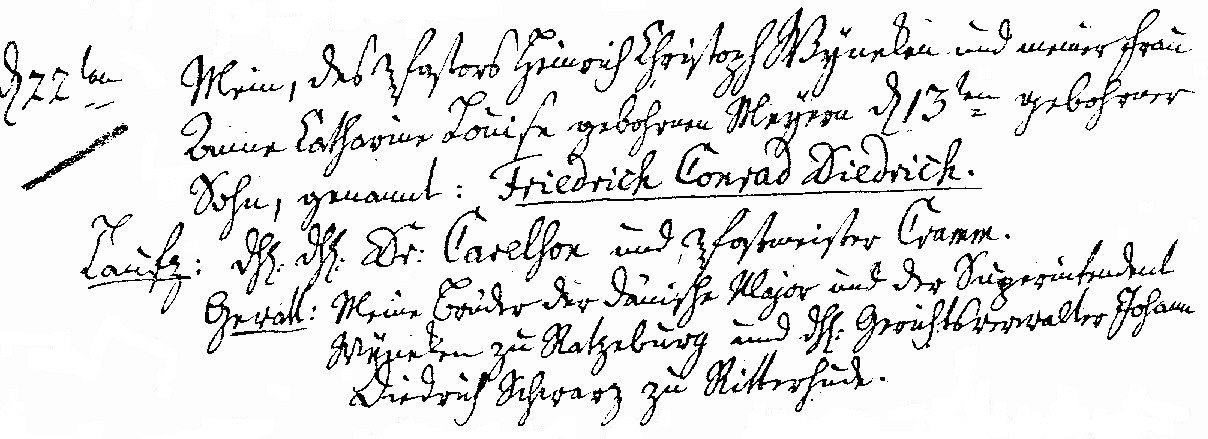 d 22ten Mein, des Pastors Heinrich Christoph Wÿneken und meiner Frau
Anne Catharine Louise gebohrnen Meÿern d 13ten gebohrner
Sohn, genannt: Friedrich Conrad Diedrich.
Taufz: Dr: Carelson und Postmeister Cramm.
Gevatt: Meine Brüder der dänische Major und der Superintendent
Wÿneken zu Ratzeburg und Gerichtsverwalter Johann
Diedrich Schwarz zu Ritterhude.